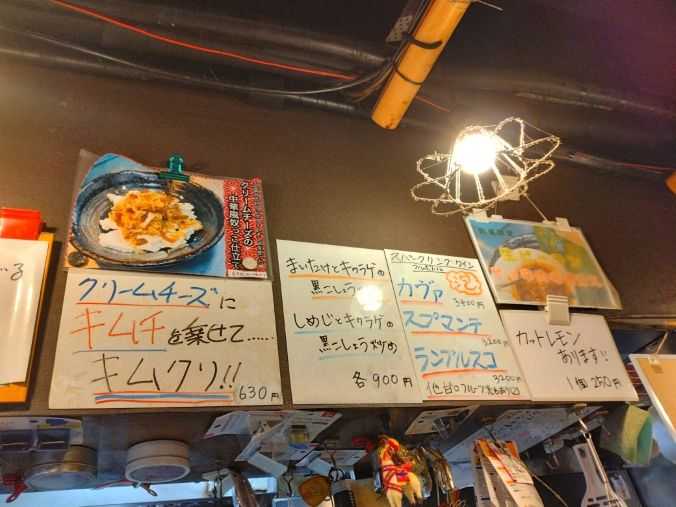 クリームチーズの
中華風奴っこ仕立て
クリームチーズに
キムチを乗せて……
キムクリ!!
630円
まいたけとキクラゲの
黒こしょう
しめじとキクラゲの
黒こしょう炒め
各900円
スパークリングワイン
カヴァ
3400円
スプマンテ
3200円
ランブルスコ
3200円
カットレモン
あります!!
1個 250円